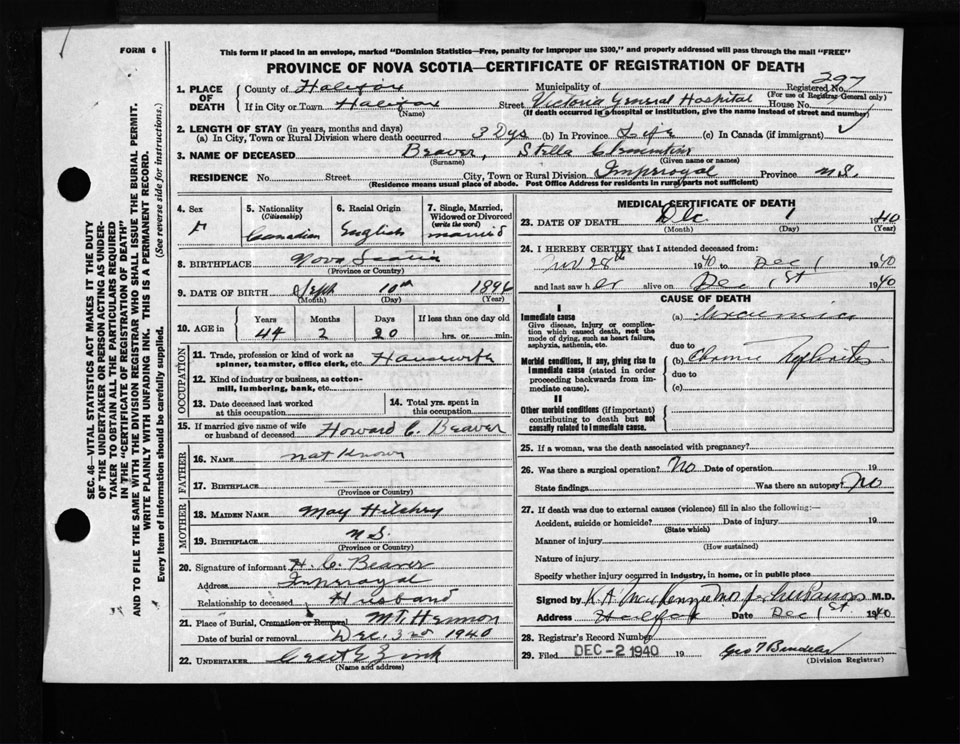 FORM 6
This form if placed in an envelope, marked "Dominion Statistics—Free, penalty for improper use $300," and properly addressed will pass through the mail "FREE"
PROVINCE OF NOVA SCOTIA—CERTIFICATE OF REGISTRATION OF DEATH
SEC. 46—VITAL STATISTICS ACT MAKES IT THE DUTY
OF THE UNDERTAKER OR PERSON ACTING AS UNDER-
TAKER TO OBTAIN ALL THE PARTICULARS REQUIRED
IN THE "CERTIFICATE OF REGISTRATION OF DEATH"
AND TO FILE THE SAME WITH THE DIVISION REGISTRAR WHO SHALL ISSUE THE BURIAL PERMIT.
WRITE PLAINLY WITH UNFADING INK. THIS IS A PERMANENT RECORD.
Every item of information should be carefully supplied. (See reverse side for instructions.)
1. PLACE OF DEATH
County of Halifax Municipality of Registered No. 297
(For use of Registrar-General only)
If in City or Town Halifax Street Victoria General Hospital House No.
(Name) (If death occurred in a hospital or institution, give the name instead of street and number)
2. LENGTH OF STAY (in years, months and days)
(a) In City, Town or Rural Division where death occurred 3 Dys (b) In Province Life (c) In Canada (if immigrant)
3. NAME OF DECEASED Beaver, Stella Clementine
(Surname) (Given name or names)
RESIDENCE No. Street City, Town or Rural Division Imperoyal Province N.S.
(Residence means usual place of abode. Post Office Address for residents in rural parts not sufficient)
4. Sex F
5. Nationality (Citizenship) Canadian
6. Racial Origin English
7. Single, Married, Widowed or Divorced (write the word) married
8. BIRTHPLACE Nova Scotia
(Province or Country)
9. DATE OF BIRTH Sept 10th 1896
(Month) (Day) (Year)
10. AGE in Years Months Days If less than one day old
44 2 20 hrs. or min.
OCCUPATION
11. Trade, profession or kind of work as spinner, teamster, office clerk, etc. Housewife
12. Kind of industry or business, as cotton-mill, lumbering, bank, etc.
13. Date deceased last worked at this occupation
14. Total yrs. spent in this occupation
15. If married give name of wife or husband of deceased Howard C. Beaver
FATHER
16. NAME not known
17. BIRTHPLACE
(Province or Country)
MOTHER
18. MAIDEN NAME May
19. BIRTHPLACE N.S.
(Province or Country)
20. Signature of informant H. C. Beaver
Address Imperoyal
Relationship to deceased Husband
21. Place of Burial, Cremation or Removal MT. Hermon
Date of burial or removal Dec. 3rd 1940
22. UNDERTAKER Zink
(Name and address)
MEDICAL CERTIFICATE OF DEATH
23. DATE OF DEATH Dec 1 1940
(Month) (Day) (Year)
24. I HEREBY CERTIFY that I attended deceased from:
Nov 28th 1940 to Dec 1 1940
and last saw her alive on Dec 1st 1940
CAUSE OF DEATH
I
Immediate cause
Give disease, injury or complication which caused death, not the mode of dying, such as heart failure, asphyxia, asthenia, etc.
(a) Uraemia
due to
Morbid conditions, if any, giving rise to immediate cause (stated in order proceeding backwards from immediate cause).
(b) Chronic Nephritis
due to
(c)
II
Other morbid conditions (if important) contributing to death but not causally related to immediate cause.
25. If a woman, was the death associated with pregnancy?
26. Was there a surgical operation? No Date of operation 19
State findings Was there an autopsy? No
27. If death was due to external causes (violence) fill in also the following:—
Accident, suicide or homicide? Date of injury 19
(State which)
Manner of injury
(How sustained)
Nature of injury
Specify whether injury occurred in industry, in home, or in public place
Signed by K. A. MacKenzie M.D.
Address Halifax Date Dec 1st 1940
28. Registrar's Record Number
29. Filed DEC - 2 1940 19
(Division Registrar)